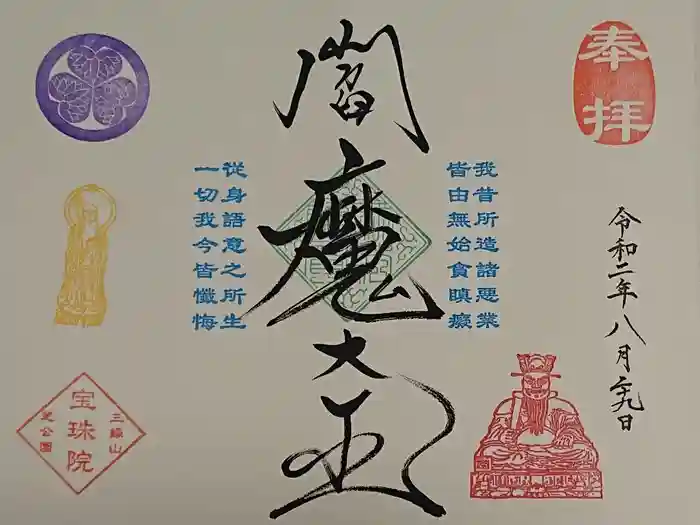 奉拝
令和二年八月二十九日
我昔所造諸悪業
皆由無始貪瞋癡
閻魔大王
從身語意之所生
一切我今皆懺悔
三縁山
宝珠院
芝公園